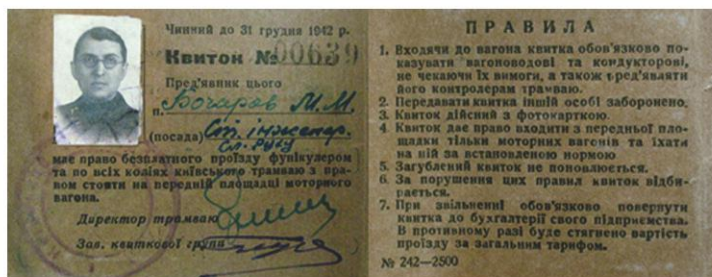 Чинний до 31 грудня 1942 р.
Квиток № 00639
Пред'явник цього
п. Бочаров М. М.
(посада) Ст. інженер.
Сл. Руху
має право безплатного проїзду фунікулером
та по всіх коліях київського трамваю з пра-
вом стояти на передній площадці моторного
вагона.
Директор трамваю
Зав. квиткової групи
ПРАВИЛА
1. Входячи до вагона квитка обов'язково по-
казувати вагоноводові та кондукторові,
не чекаючи їх вимоги, а також пред'являти
його контролерам трамваю.
2. Передавати квитка іншій особі заборонено.
3. Квиток дійсний з фотокарткою.
4. Квиток дає право входити з передньої пло-
щадки тільки моторних вагонів та їхати
на ній за встановленою нормою
5. Загублений квиток не поновлюється.
6. За порушення цих правил квиток відби-
рається.
7. При звільненні обов'язково повернути
квитка до бухгалтерії свого підприємства.
В противному разі буде стягнено вартість
проїзду за загальним тарифом.
№ 242—2500